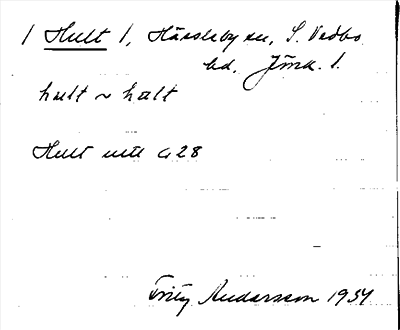 / Hult /, Hässleby sn, S. Vedbo
hd, Jönk. l.
hult ~ hœlt
Hult utt G 28
Fritz Andersson 1934